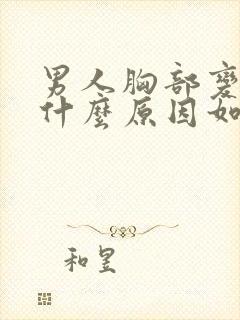 男人胸部
什麼原因如
和